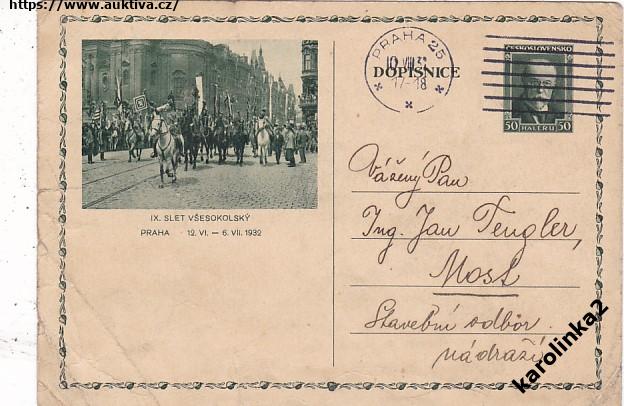 https://www.auktiva.cz/
IX. SLET VŠESOKOLSKÝ
PRAHA 12. VI. — 6. VII. 1932
PRAHA 25
17-18
DOPISNICE
ČESKOSLOVENSKO
50 HALÉŘŮ 50
Vážený Pan
Ing. Jan Tengler,
Most
Stavební odbor.
nádraží
karolinka2